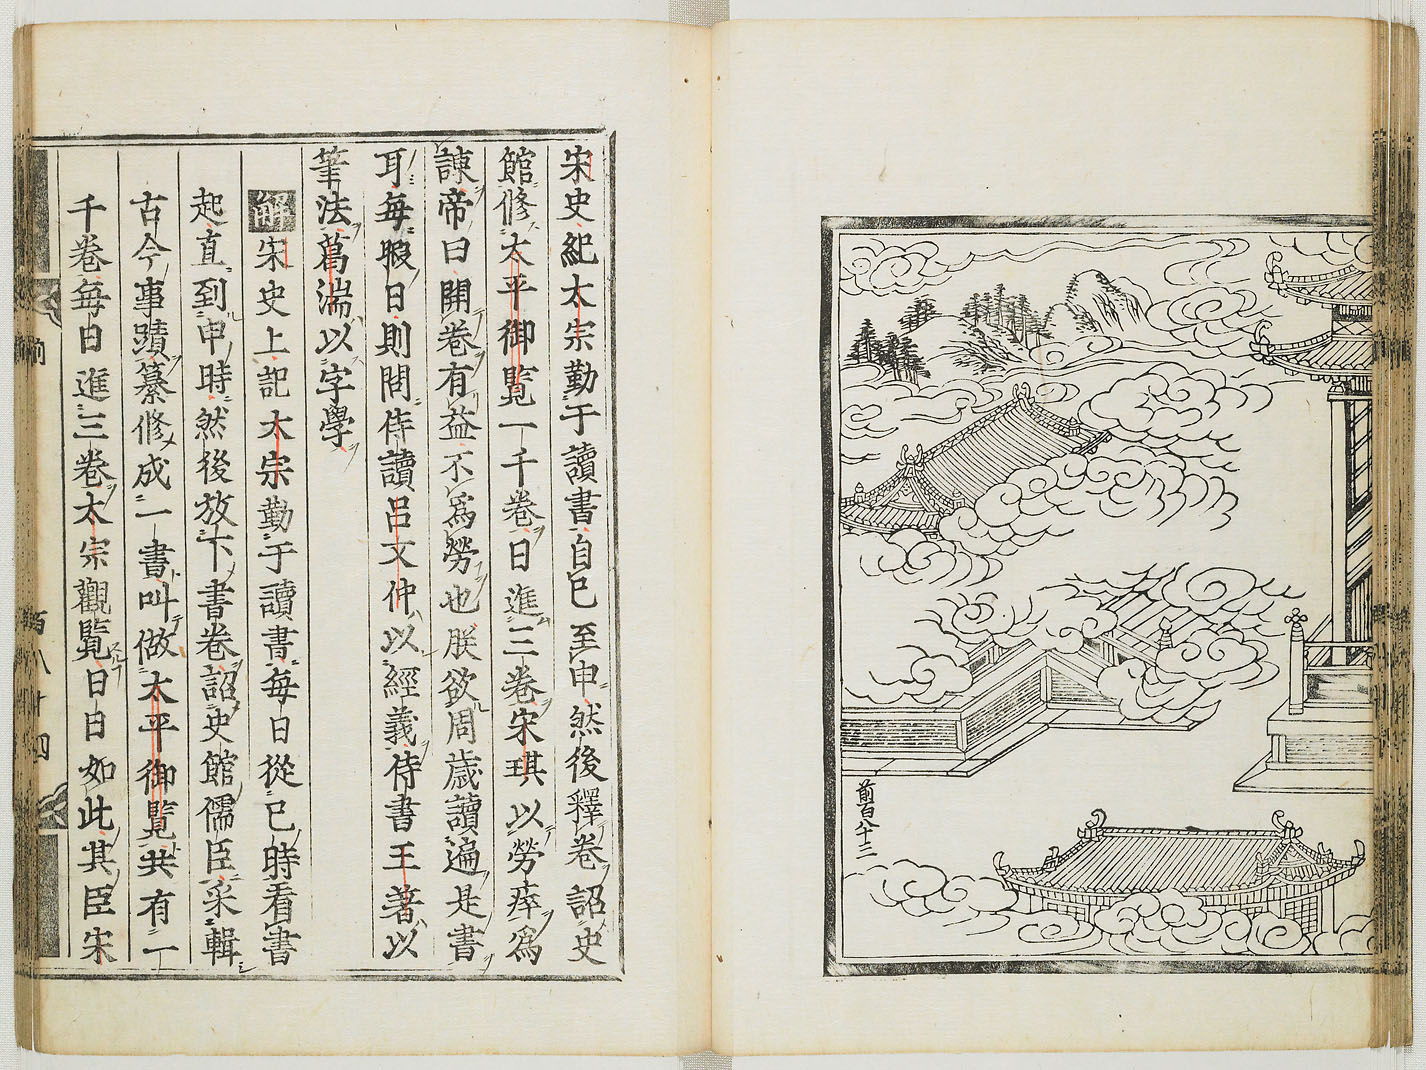 前百八十三
宋史紀太宗勤于讀書自巳至申然後釋卷詔史
館修太平御覧一千卷日進三卷宋琪以勞瘁爲
諫帝曰開卷有益不爲勞也朕欲周歲讀遍是書
耳每暇日則問侍讀呂文仲以經義侍書王著以
筆法葛湍以字學
解宋史上記太宗勤于讀書每日從巳時看書
起直到申時然後放下書卷詔史館儒臣采輯
古今事蹟纂修成一書叫做太平御覧共有一
千卷每日進三卷太宗觀覧日日如此其臣宋
百八十四